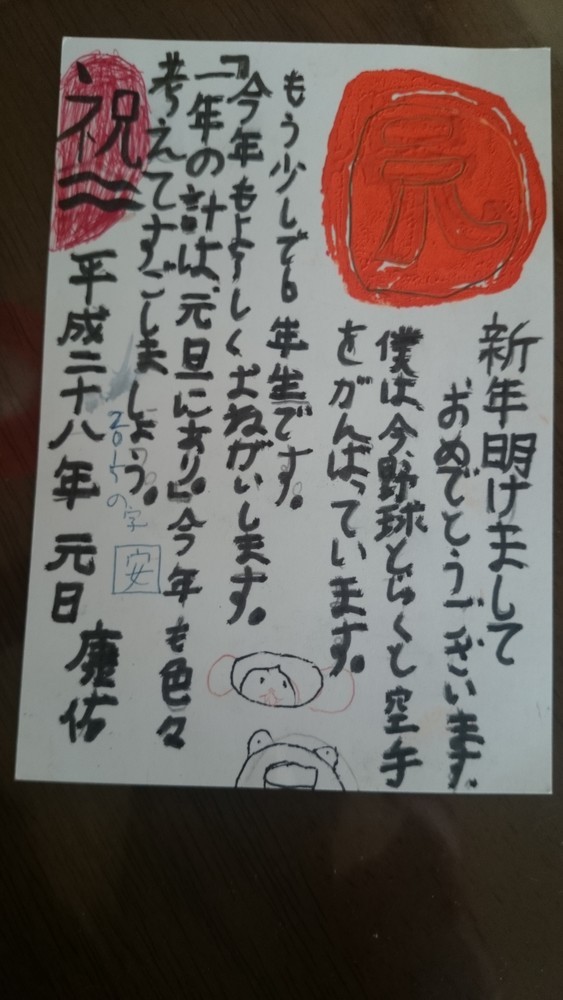 元
新年明けまして
おめでとうございます。
僕は今、野球とじゅくと空手
をがんばっています。
もう少しで6年生です。
今年もよろしくおねがいします。
『一年の計は、元旦にあり。』今年も色々
考えてすごしましょう。
祝
平成二十八年 元日
康佑
2015の字
安